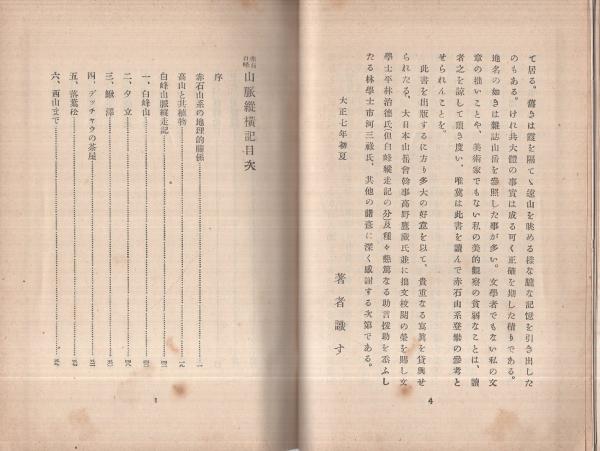 て居る。舊きは霞を隔てゝ遠山を眺める樣な朧な記憶を引き出した
のもある。けれ共大體の事實は成る可く正確を期した積りである。
地名の如きは雜誌山岳を參照した事が多い。文學者でもない私の文
章の拙いことや、美術家でもない私の美的觀察の貧弱なことは、讀
者之を諒して頂き度い、唯冀は此書を讀んで赤石山系登攀の參考と
せられんことを。
此書を出版するに方り多大の好意を以て、貴重なる寫眞を貸與せ
られたる、大日本山岳會幹事高野鷹藏氏並に拙文校閲の榮を賜し文
學士平林治德氏(但白峰縱走記の分)及種々懇篤なる助言援助を忝ふし
たる林學士市河三祿氏、其他の諸彦に深く感謝する次第である。
大正七年初夏
著者識す
4
赤石白峰山脈縱橫記目次
序
赤石山系の地理的關係
高山と其植物
白峰山脈縱走記
一、白峰山
二、夕立
三、鰍澤
四、デッチャウの茶屋
五、落葉松
六、西山まで
1